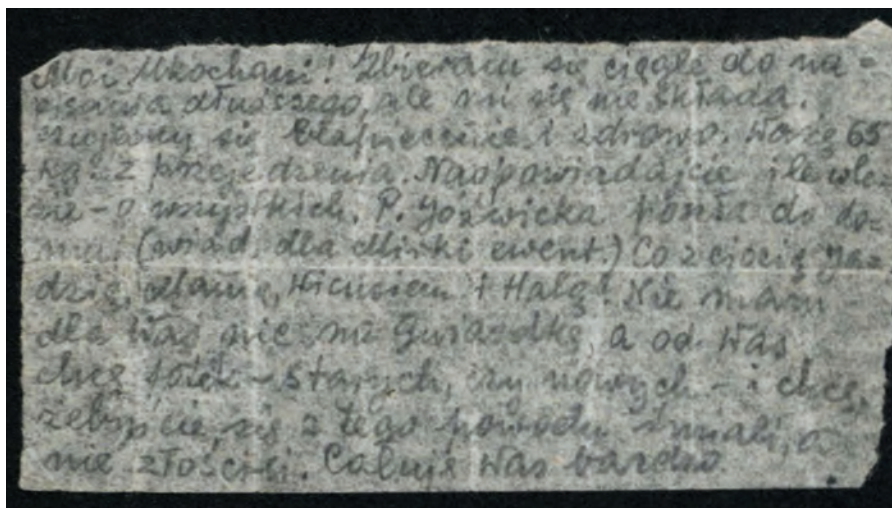 Moi Ukochani! Zbieram się ciągle do na=
pisania dłuższego, ale mi się nie składa.
czujemy się bezpiecznie i zdrowo. Ważę 65
kg - z przejedzenia. Naopowiadajcie ile wle=
zie - o wszystkich. P. Jóźwicka poszła do do=
mu. (wiad. dla Mirki ewent.) Co z ciocią Ja=
dzią, Manią, Wicusiem i Halą? Nie mam
dla Was nic na Gwiazdkę, a od Was
chcę fotek - starych, czy nowych - i chcę,
żebyście się z tego powodu śmiali, a
nie złościli. Całuję Was bardzo